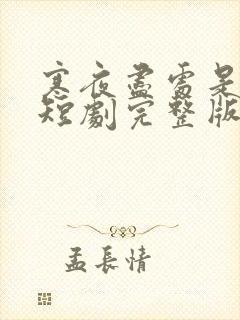 寒夜盡雷是
短劇完整版
孟長情